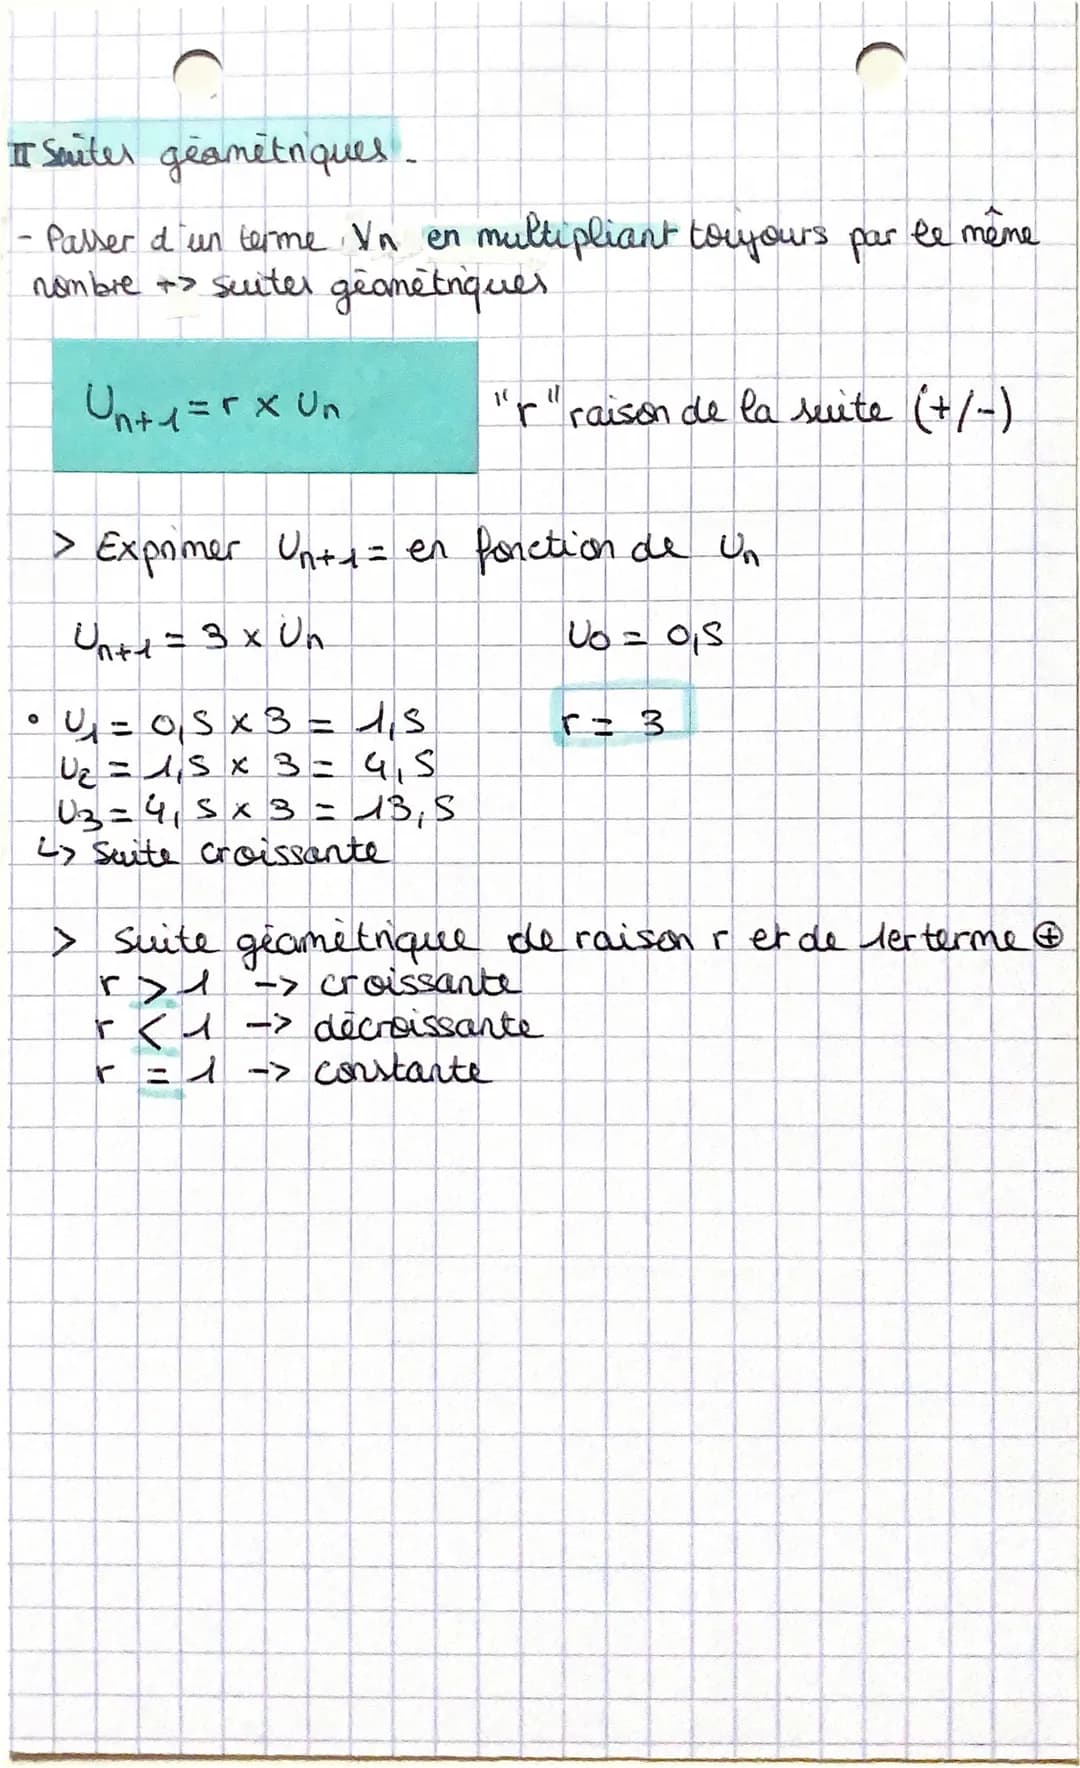 II Suites géométriques.
- Passer d'un terme Vn en multipliant toujours par le même
nombre +> suites géométriques
Un+1 = r x Un
"r" raison de la suite (+/-)
> Exprimer Un+1 = en fonction de Un
Un+1 = 3 x Un
U0 = 0,5
• U1 = 0,5 x 3 = 1,5
r = 3
U2 = 1,5 x 3 = 4,5
U3 = 4,5 x 3 = 13,5
↳ Suite croissante
> Suite géométrique de raison r et de 1er terme ⊕
r > 1 -> croissante
r < 1 -> décroissante
r = 1 -> constante